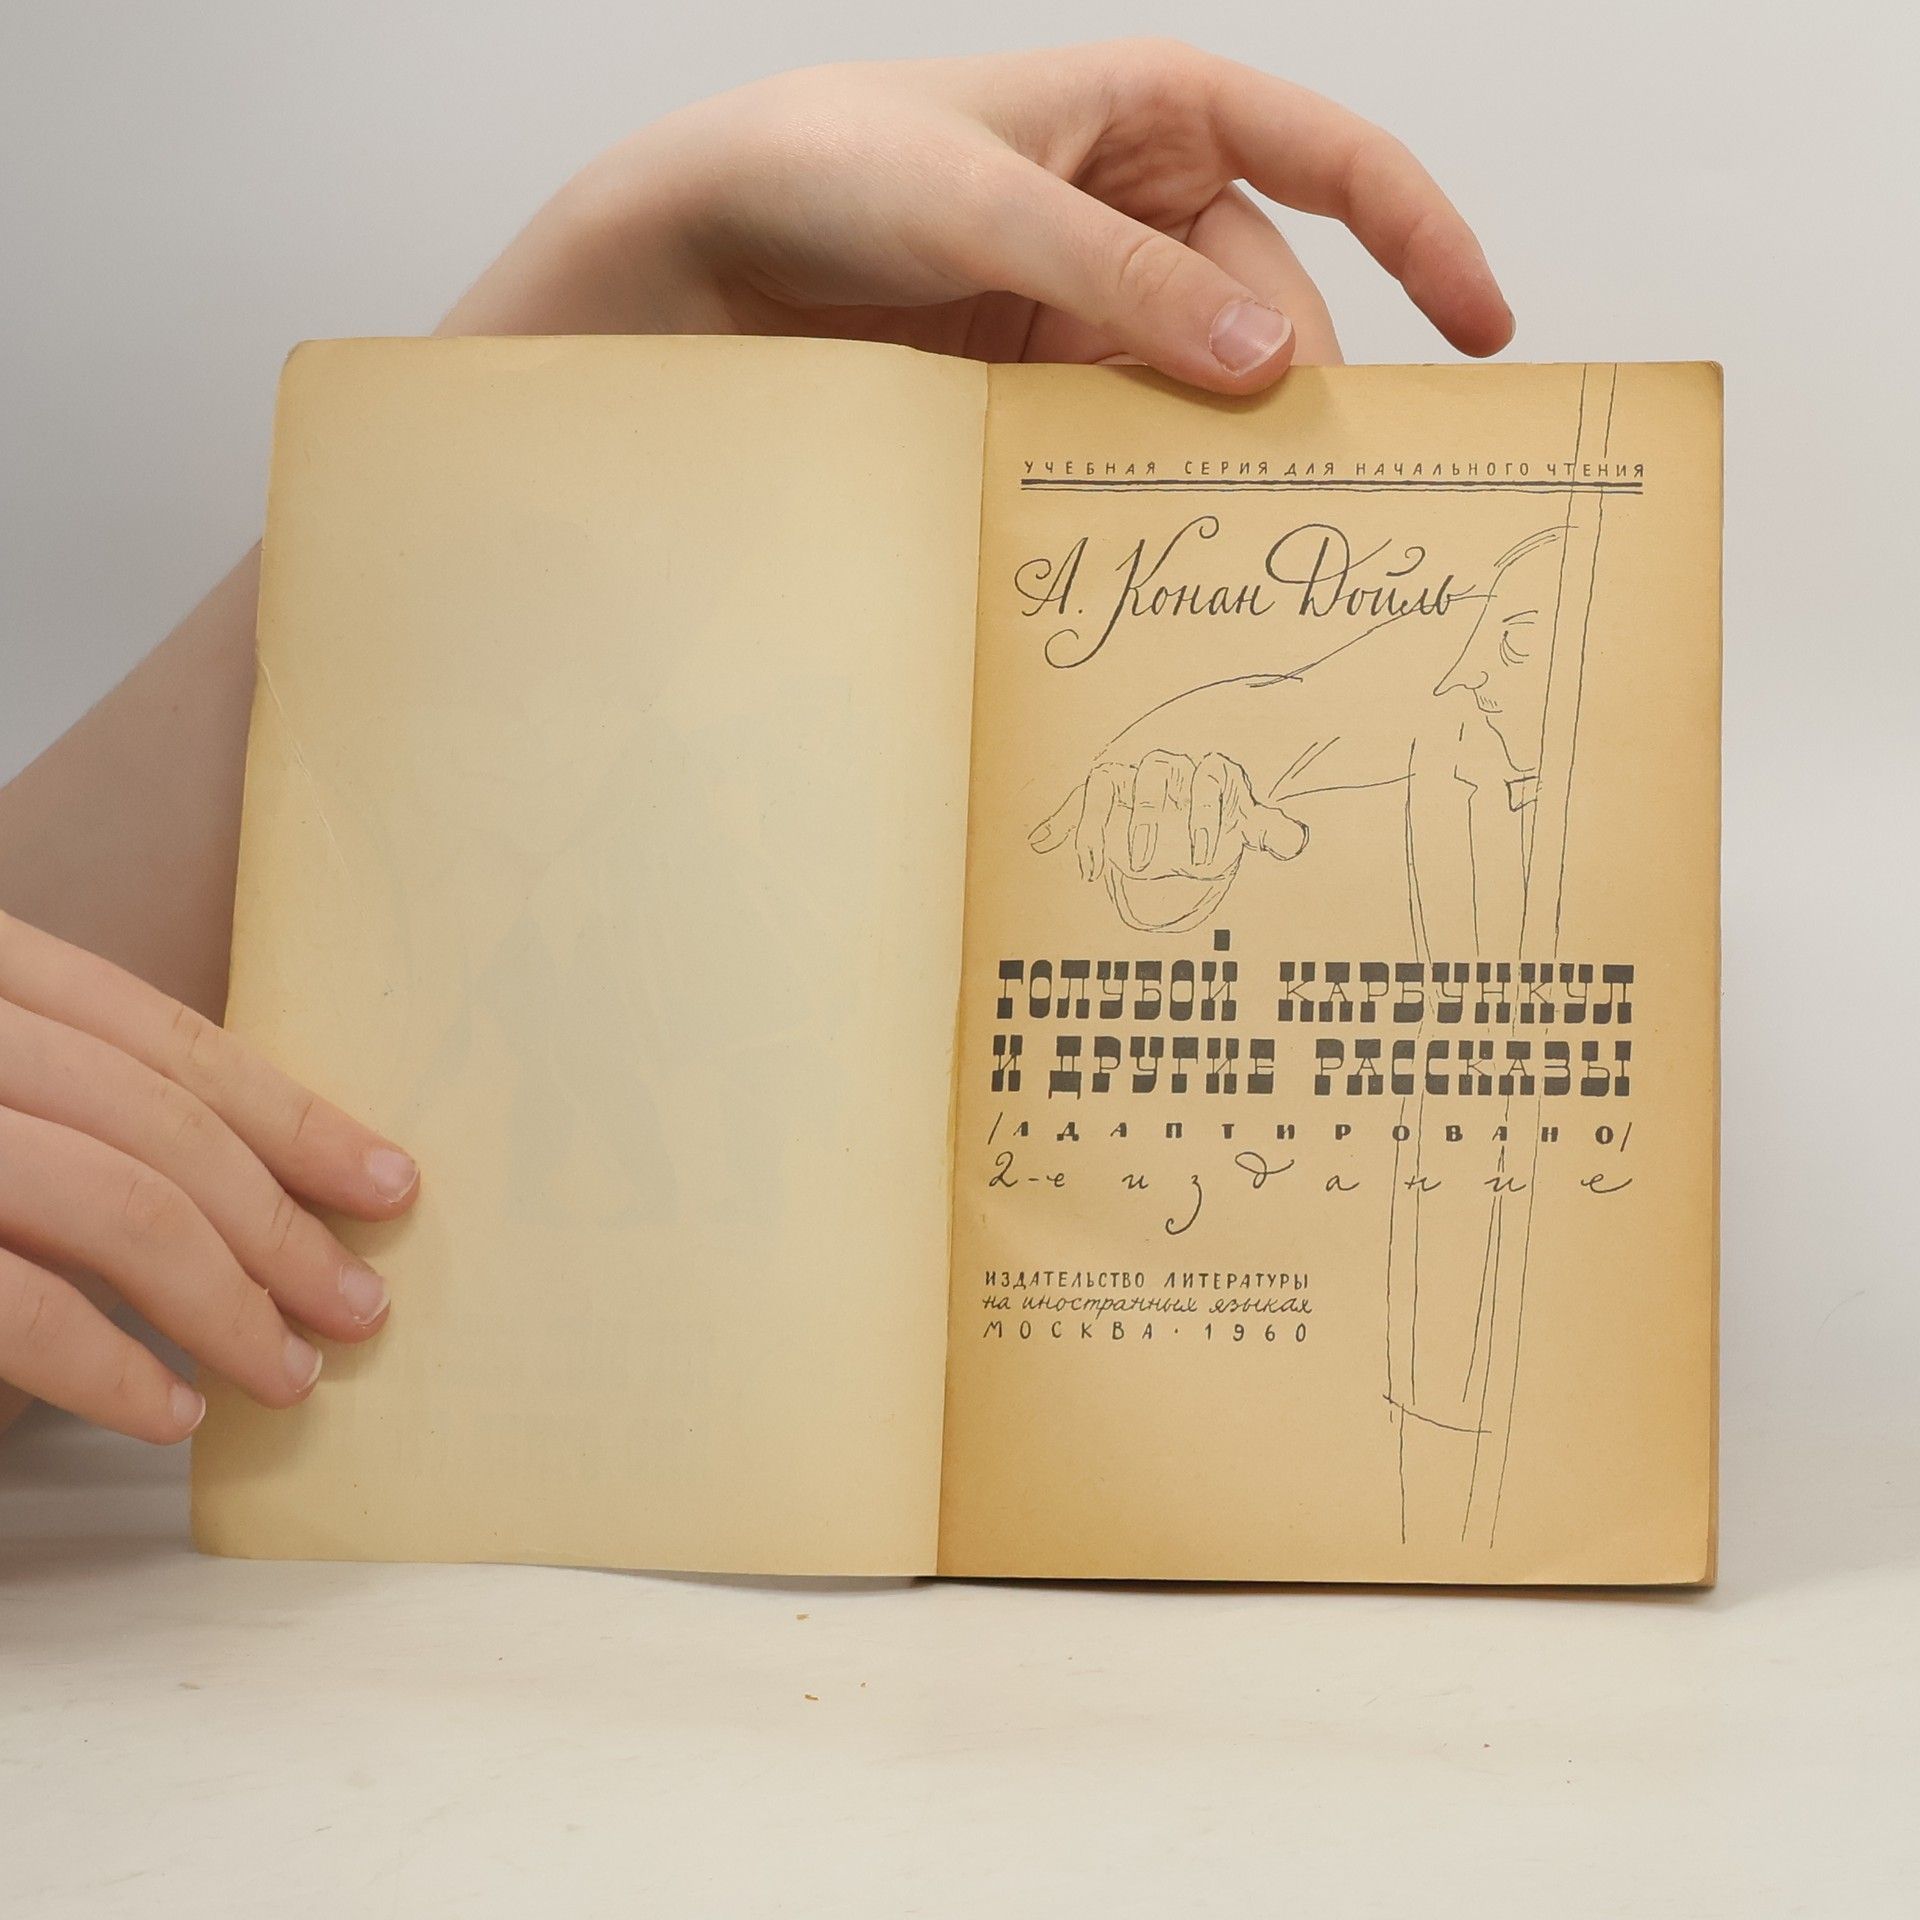 УЧЕБНАЯ СЕРИЯ ДЛЯ НАЧАЛЬНОГО ЧТЕНИЯ
А. Конан Дойль
ГОЛУБОЙ КАРБУНКУЛ
И ДРУГИЕ РАССКАЗЫ
/АДАПТИРОВАНО/
2-е издание
ИЗДАТЕЛЬСТВО ЛИТЕРАТУРЫ
на иностранных языках
МОСКВА · 1960